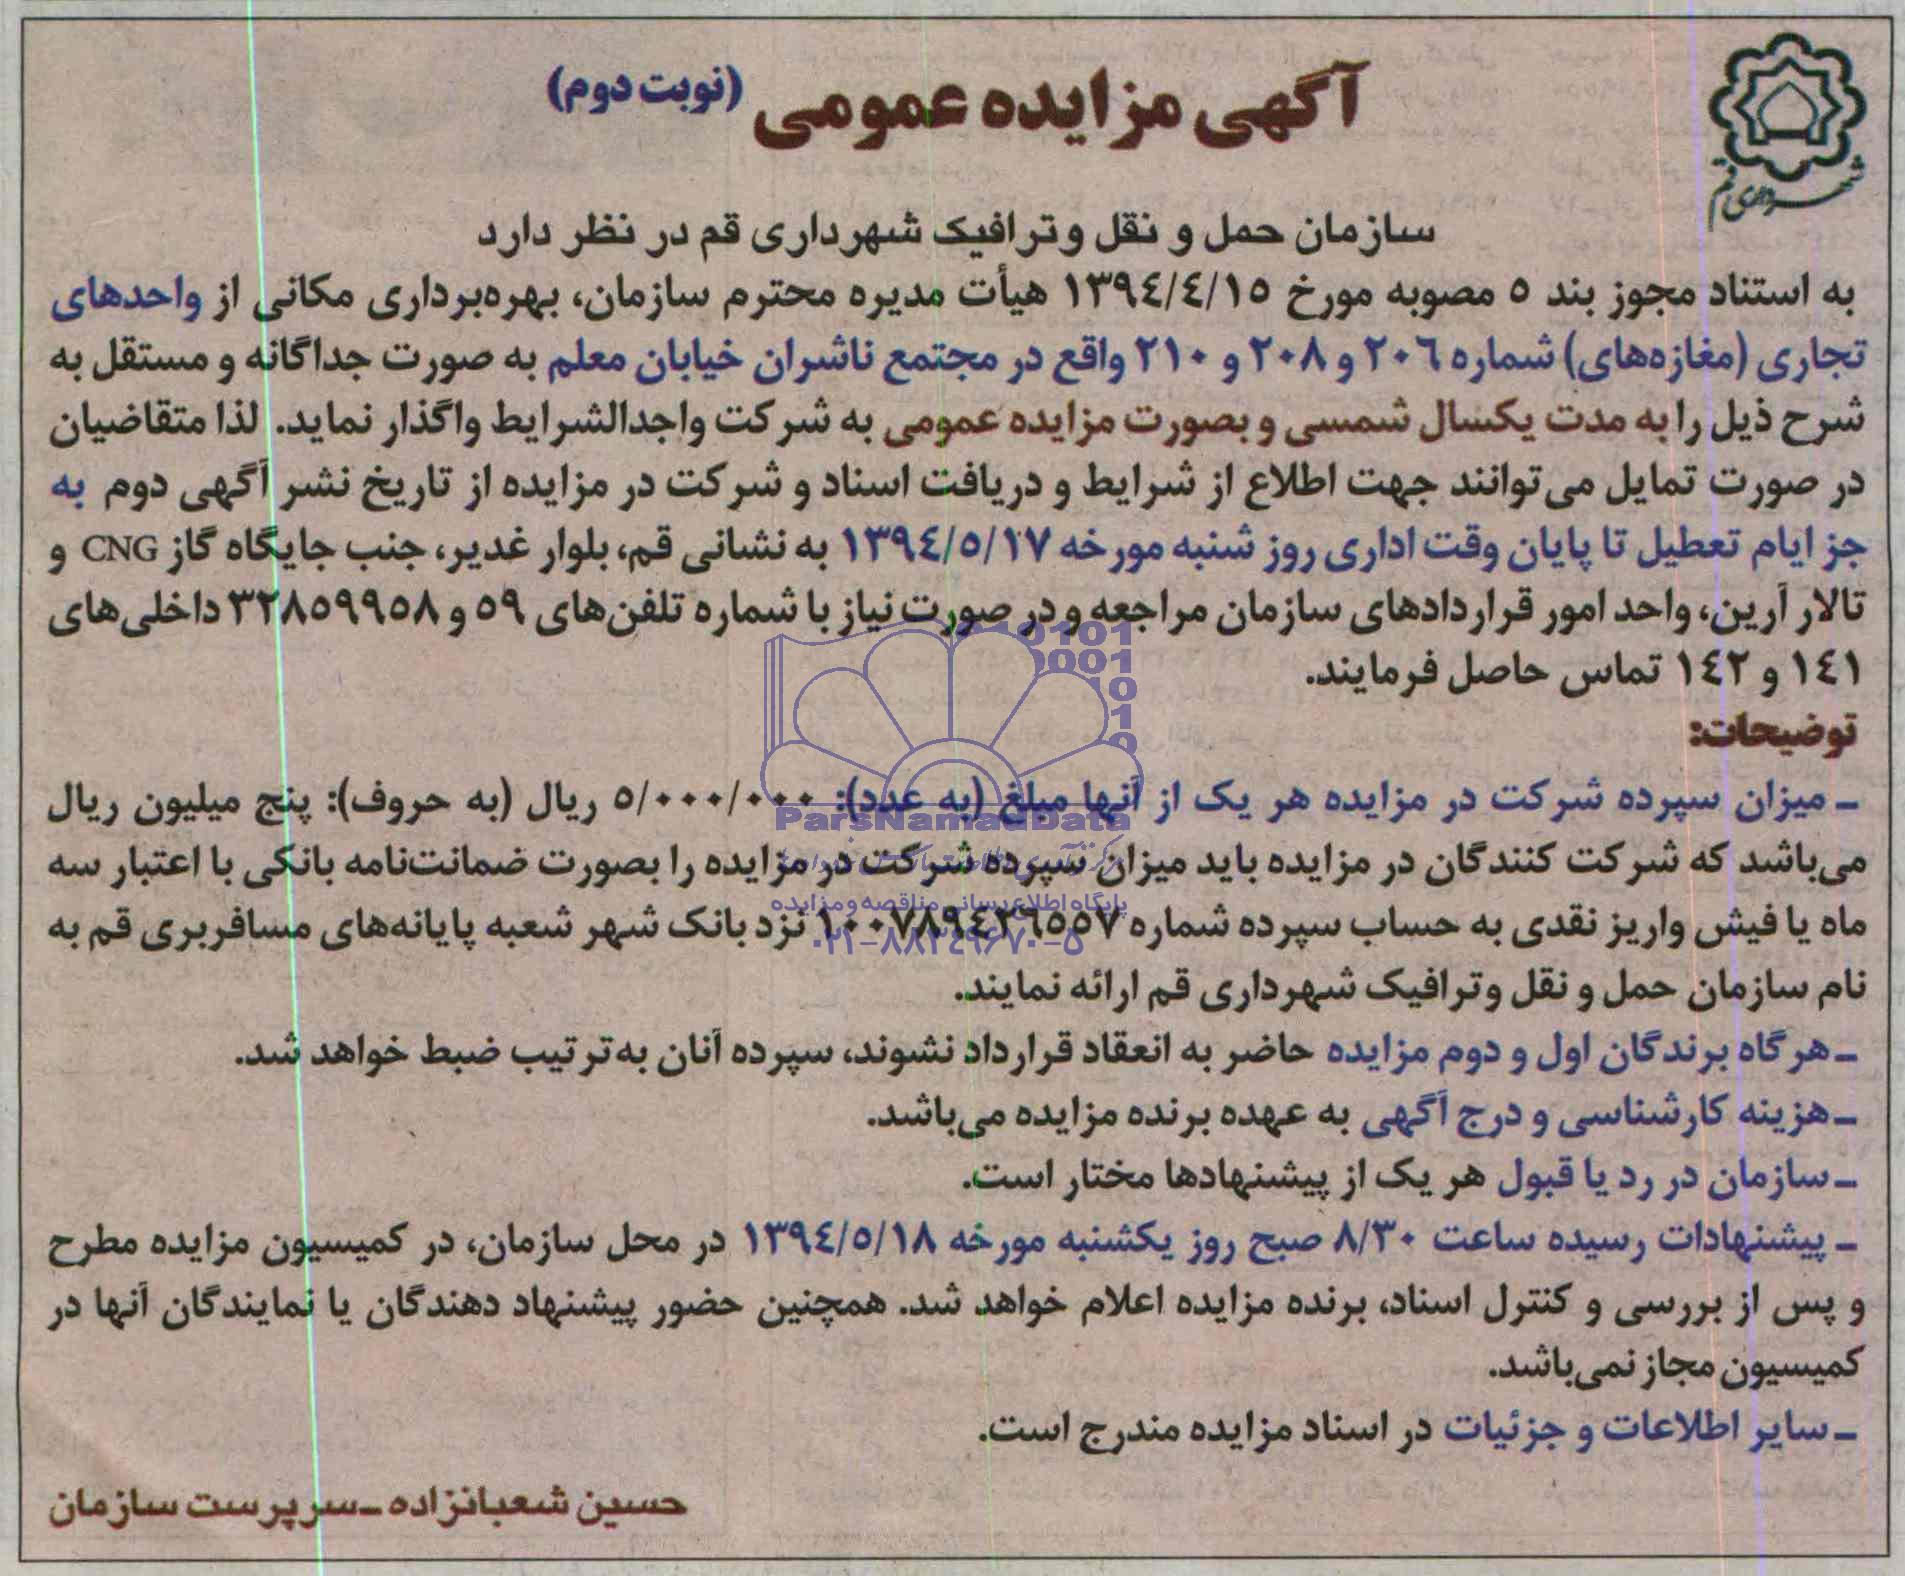 آگهی مزایده عمومی (نوبت دوم)
شهرداری قم
سازمان حمل و نقل و ترافیک شهرداری قم در نظر دارد
به استناد مجوز بند ۵ مصوبه مورخ ۱۳۹۴/۴/۱۵ هیأت مدیره محترم سازمان، بهره‌برداری مکانی از واحدهای
تجاری (مغازه‌های) شماره ۲۰۶ و ۲۰۸ و ۲۱۰ واقع در مجتمع ناشران خیابان معلم به صورت جداگانه و مستقل به
شرح ذیل را به مدت یکسال شمسی و بصورت مزایده عمومی به شرکت واجدالشرایط واگذار نماید. لذا متقاضیان
در صورت تمایل می‌توانند جهت اطلاع از شرایط و دریافت اسناد و شرکت در مزایده از تاریخ نشر آگهی دوم به
جز ایام تعطیل تا پایان وقت اداری روز شنبه مورخه ۱۳۹۴/۵/۱۷ به نشانی قم، بلوار غدیر، جنب جایگاه گاز CNG و
تالار آرین، واحد امور قراردادهای سازمان مراجعه و در صورت نیاز با شماره تلفن‌های ۵۹ و ۳۲۸۵۹۹۵۸ داخلی‌های
۱۴۱ و ۱۴۲ تماس حاصل فرمایند.
توضیحات:
ـ میزان سپرده شرکت در مزایده هر یک از آنها مبلغ (به عدد): ۵/۰۰۰/۰۰۰ ریال (به حروف): پنج میلیون ریال
می‌باشد که شرکت کنندگان در مزایده باید میزان سپرده شرکت در مزایده را بصورت ضمانت‌نامه بانکی با اعتبار سه
ماه یا فیش واریز نقدی به حساب سپرده شماره نزد بانک شهر شعبه پایانه‌های مسافربری قم به
نام سازمان حمل و نقل و ترافیک شهرداری قم ارائه نمایند.
ـ هرگاه برندگان اول و دوم مزایده حاضر به انعقاد قرارداد نشوند، سپرده آنان به‌ترتیب ضبط خواهد شد.
ـ هزینه کارشناسی و درج آگهی به عهده برنده مزایده می‌باشد.
ـ سازمان در رد یا قبول هر یک از پیشنهادها مختار است.
ـ پیشنهادات رسیده ساعت ۸/۳۰ صبح روز یکشنبه مورخه ۱۳۹۴/۵/۱۸ در محل سازمان، در کمیسیون مزایده مطرح
و پس از بررسی و کنترل اسناد، برنده مزایده اعلام خواهد شد. همچنین حضور پیشنهاد دهندگان یا نمایندگان آنها در
کمیسیون مجاز نمی‌باشد.
ـ سایر اطلاعات و جزئیات در اسناد مزایده مندرج است.
حسین شعبانزاده ـ سرپرست سازمان
ParsNamadData
پایگاه اطلاع رسانی مناقصه و مزایده
۰۲۱-۸۸۳۴۹۶۷۰-۵